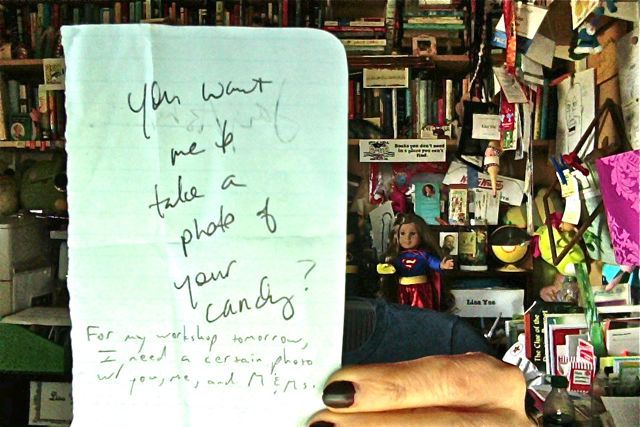 You want
me to
take a
photo of
your
candy?
For my workshop tomorrow,
I need a certain photo
w/ you, me, and M & Ms.
Books you don't need
in a place you can't
find.
Lisa Yee
The Clue of the